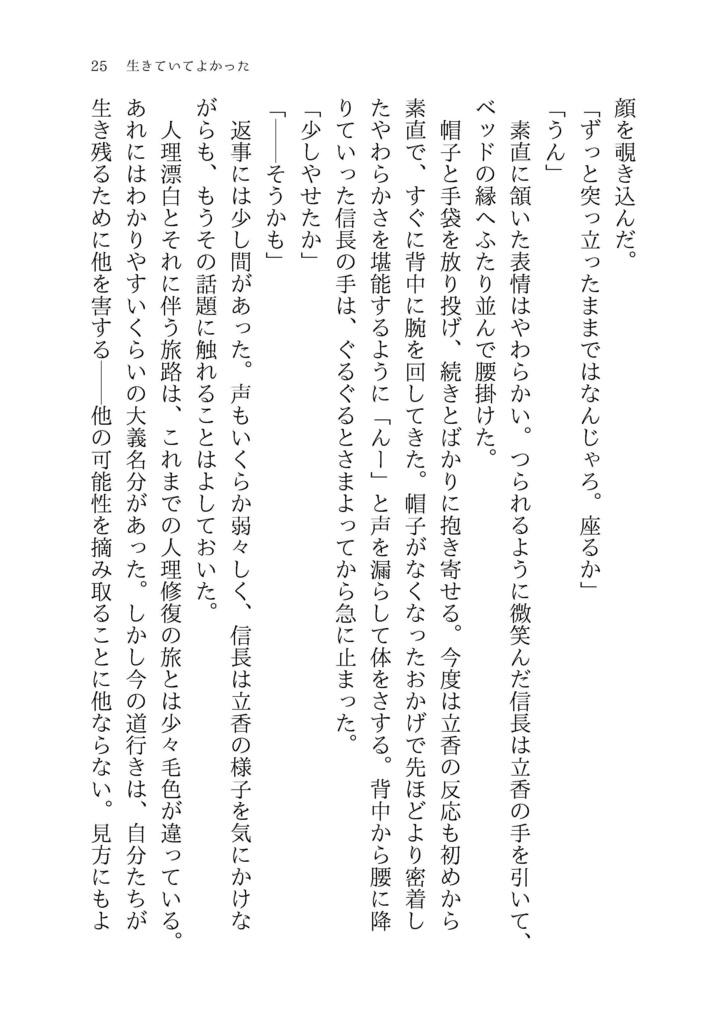 25 生きていてよかった
顔を覗き込んだ。
「ずっと突っ立ったままではなんじゃろ。座るか」
「うん」
素直に頷いた表情はやわらかい。つられるように微笑んだ信長は立香の手を引いて、
ベッドの縁へふたり並んで腰掛けた。
帽子と手袋を放り投げ、続きとばかりに抱き寄せる。今度は立香の反応も初めから
素直で、すぐに背中に腕を回してきた。帽子がなくなったおかげで先ほどより密着し
たやわらかさを堪能するように「んー」と声を漏らして体をさする。背中から腰に降
りていった信長の手は、ぐるぐるとさまよってから急に止まった。
「少しやせたか」
「――そうかも」
返事には少し間があった。声もいくらか弱々しく、信長は立香の様子を気にかけな
がらも、もうその話題に触れることはよしておいた。
人理漂白とそれに伴う旅路は、これまでの人理修復の旅とは少々毛色が違っている。
あれにはわかりやすいくらいの大義名分があった。しかし今の道行きは、自分たちが
生き残るために他を害する――他の可能性を摘み取ることに他ならない。見方にもよ